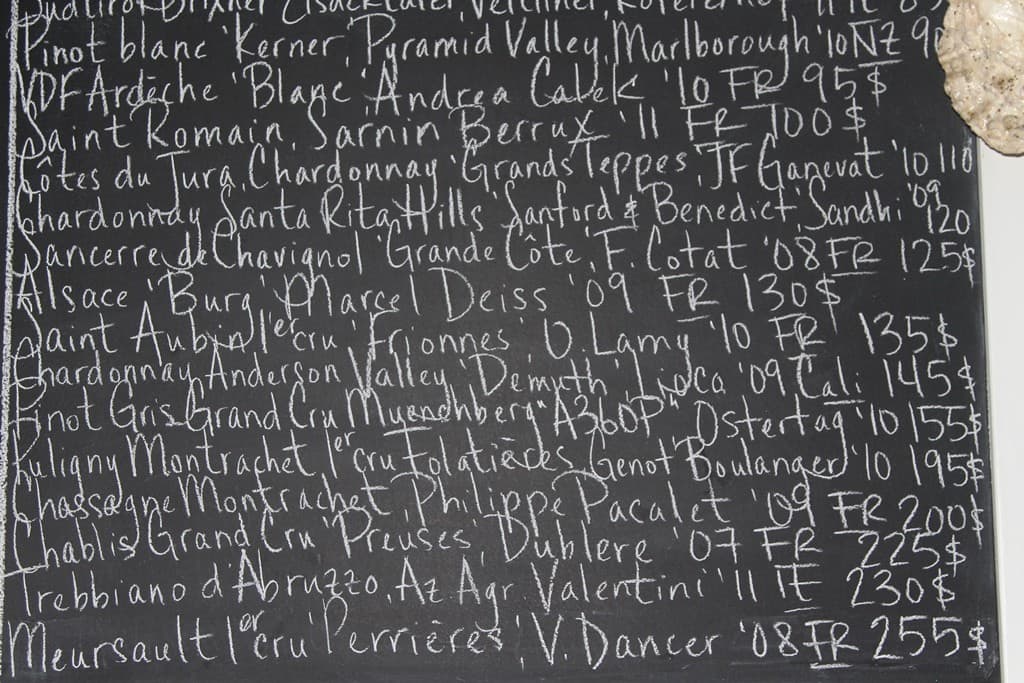 Pinot blanc 'Kerner', Pyramid Valley, Marlborough '10 NZ 90
VDF Ardèche 'Blanc' Andrea Calek '10 FR 95$
Saint Romain, Sarnin Berrux '11 FR 100$
Côtes du Jura, Chardonnay 'Grands Teppes', JF Ganevat '10 110
Chardonnay Santa Rita Hills 'Sanford & Benedict', Sandhi '09 120
Sancerre de Chavignol 'Grande Côte', F. Cotat '08 FR 125$
Alsace 'Burg' Marcel Deiss '09 FR 130$
Saint Aubin 1er cru 'Frionnes', O. Lamy '10 FR 135$
Chardonnay Anderson Valley, 'Demuth' Lioca '09 Cali 145$
Pinot Gris Grand Cru Muenchberg "A360P" Ostertag '10 155$
Puligny Montrachet 1er cru Folatières, Genot Boulanger '10 195$
Chassagne Montrachet, Philippe Pacalet '09 FR 200$
Chablis Grand Cru 'Preuses', Dublere '07 FR 225$
Trebbiano d'Abruzzo, Az Agr Valentini '11 IT 230$
Meursault 1er cru 'Perrières', V. Dancer '08 FR 255$